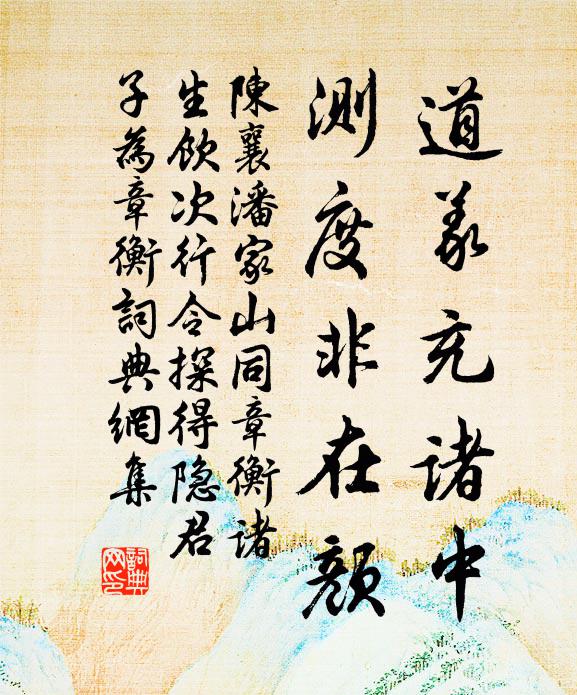 道义充诸中
测度非在颜
陳襄潘家山同章衡诸
生饮次行令探得隐君
子為章衡詞典網集
詞典
网印